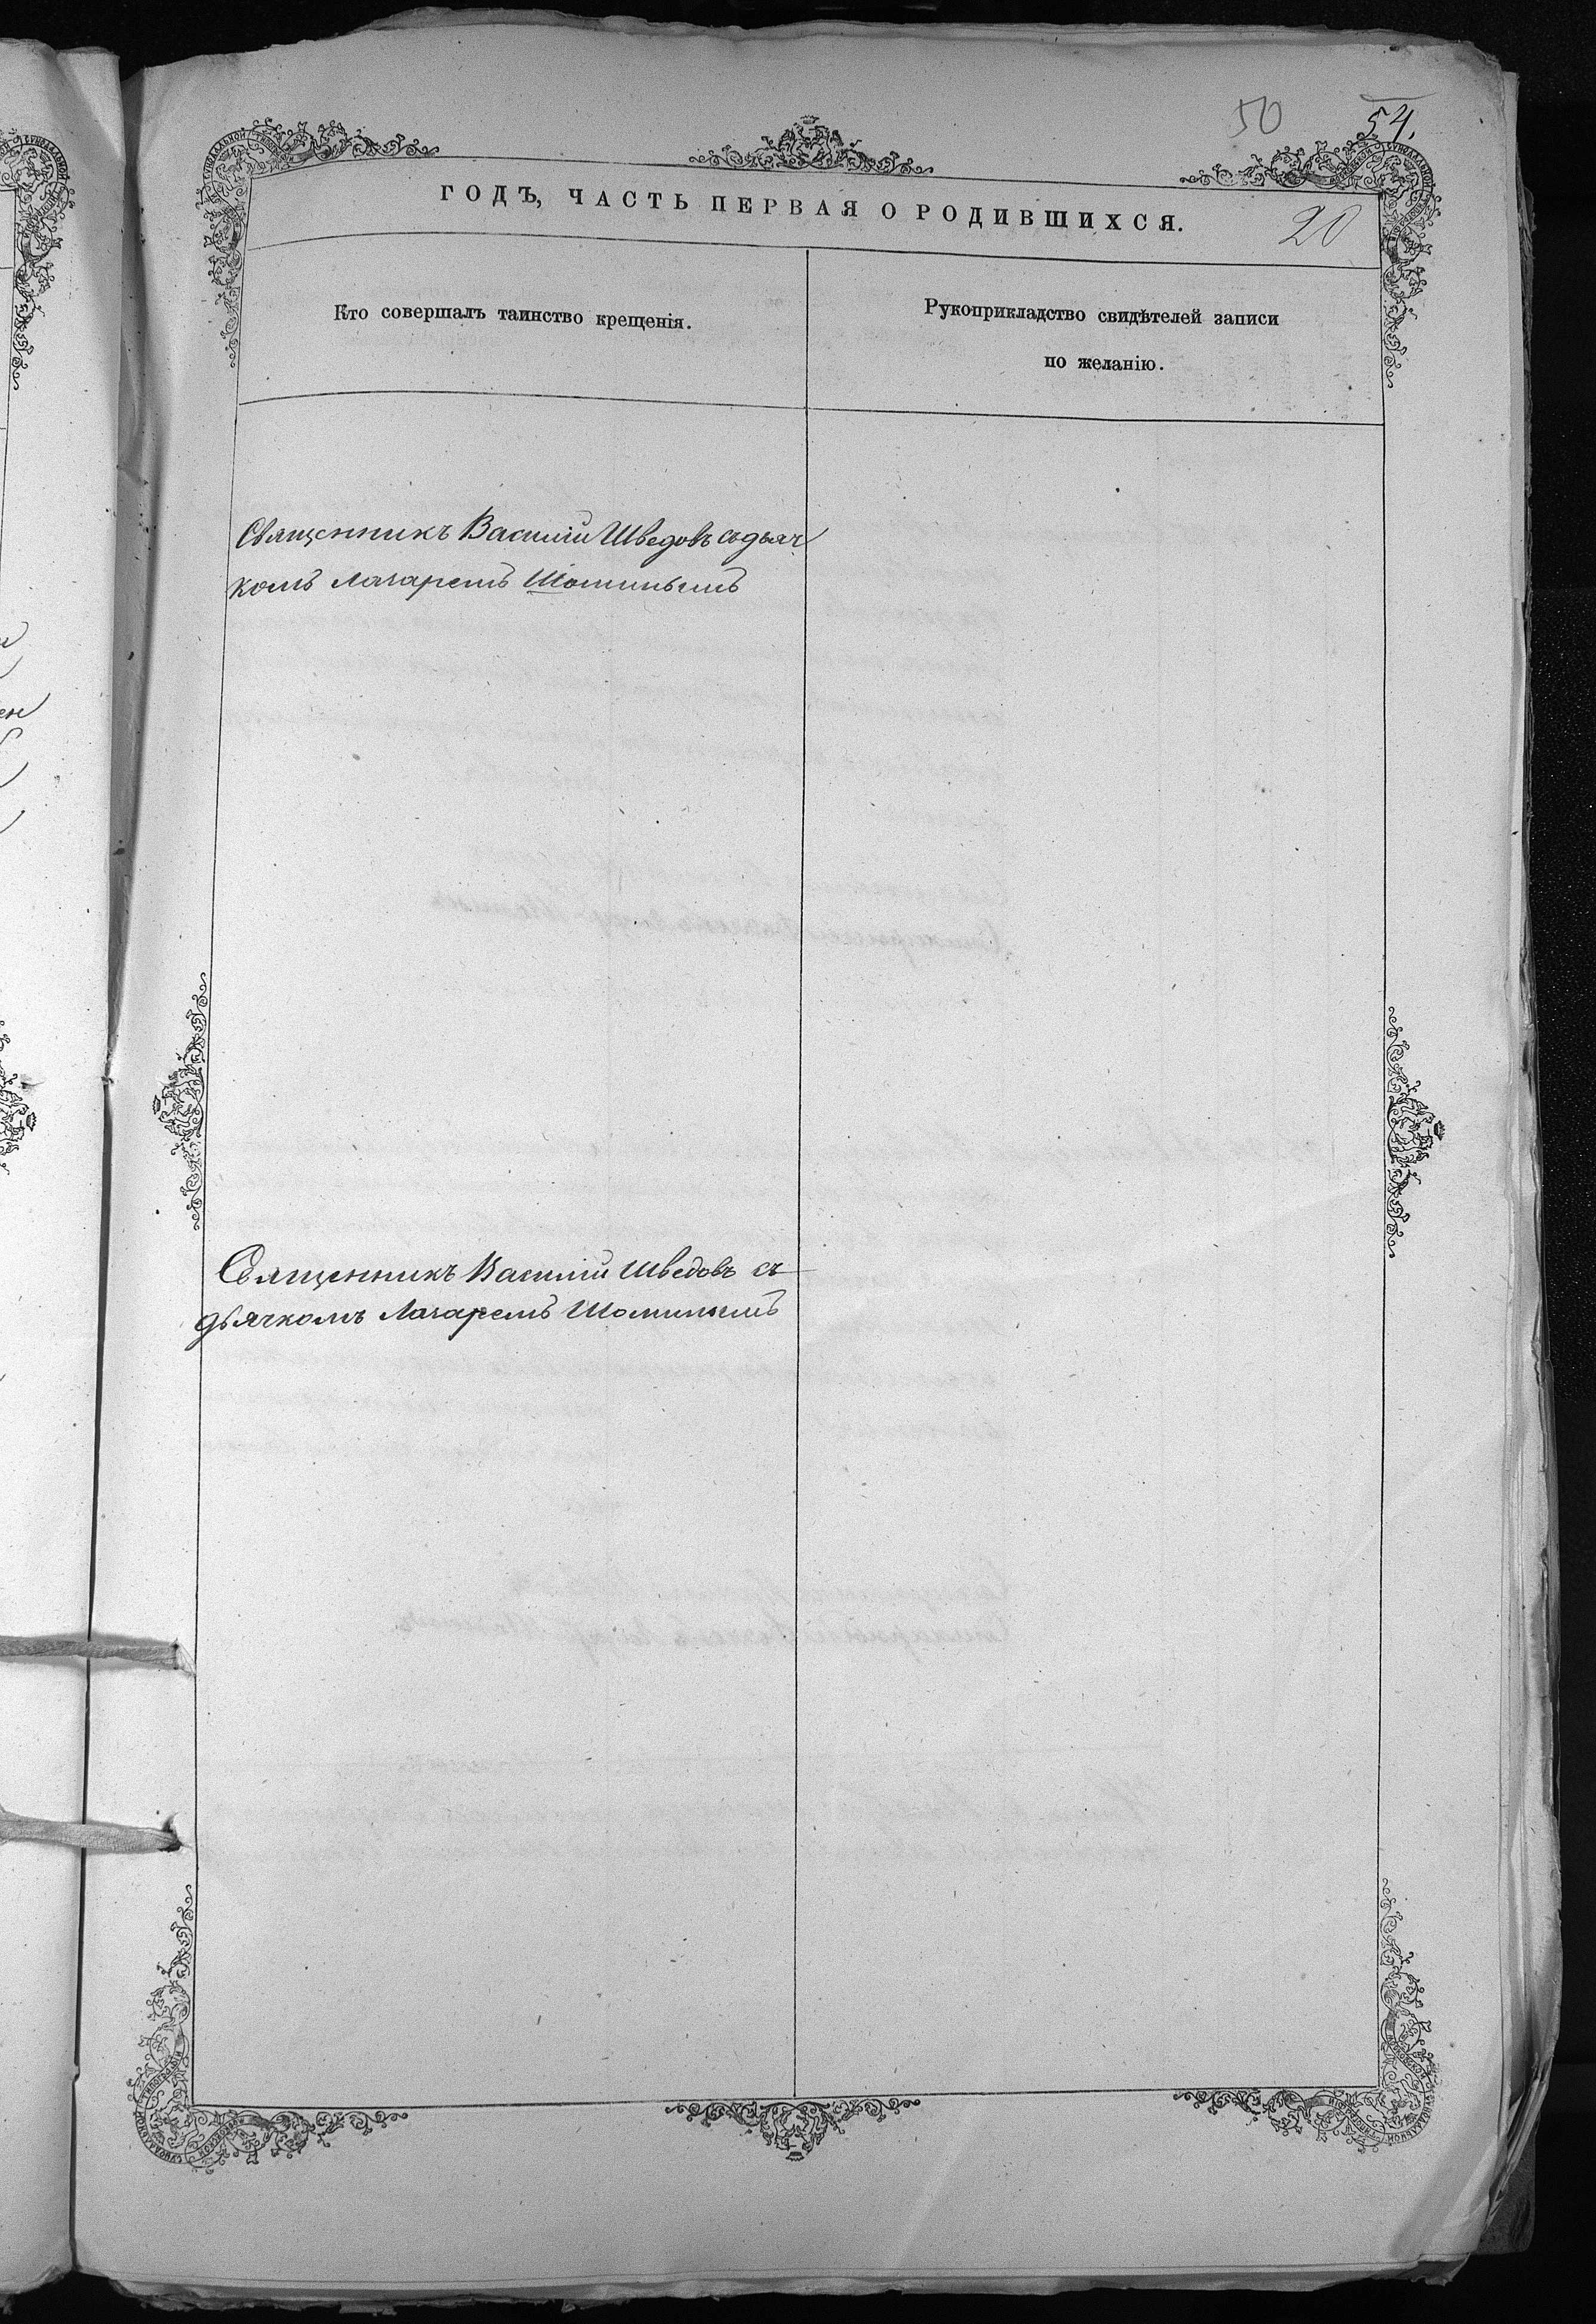 50
54.
ГОДЪ, ЧАСТЬ ПЕРВАЯ О РОДИВШИХСЯ.
20
Кто совершалъ таинство крещенія.
Рукоприкладство свидѣтелей записи
по желанію.
Священникъ Василій Шведовъ съ дьяч
комъ Лазаремъ Шоминымъ
Священникъ Василій Шведовъ съ
дьячкомъ Лазаремъ Шоминымъ